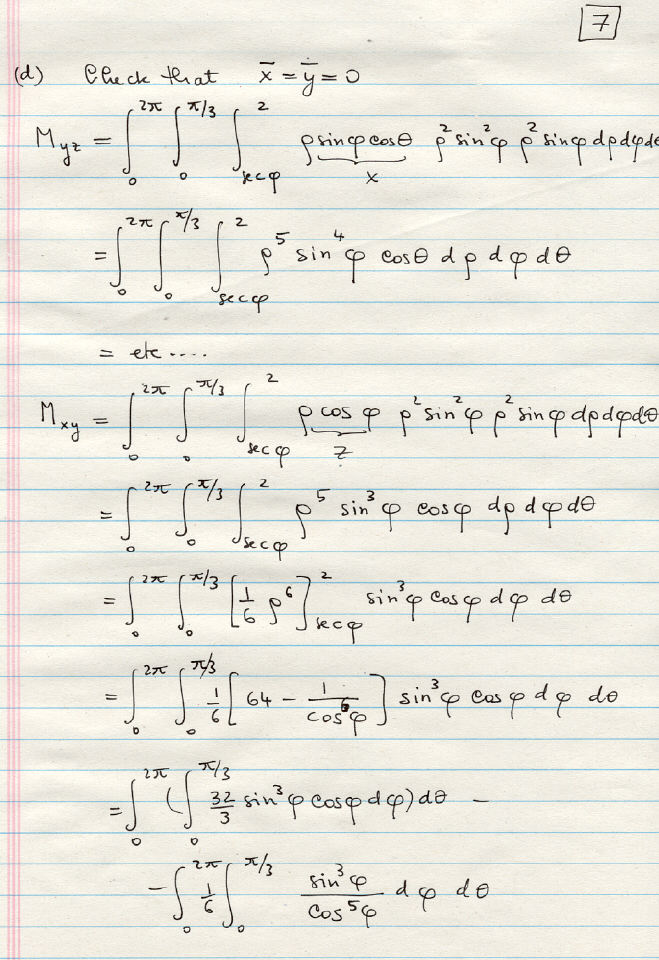 7
(d) Check that x̄ = ȳ = 0
M_yz = ∫_0^{2π} ∫_0^{π/3} ∫_{sec φ}^{2} ρ sin φ cos θ ρ² sin² φ ρ² sin φ dρ dφ dθ
x
= ∫_0^{2π} ∫_0^{π/3} ∫_{sec φ}^{2} ρ⁵ sin⁴ φ cos θ dρ dφ dθ
= etc ....
M_xy = ∫_0^{2π} ∫_0^{π/3} ∫_{sec φ}^{2} ρ cos φ ρ² sin² φ ρ² sin φ dρ dφ dθ
z
= ∫_0^{2π} ∫_0^{π/3} ∫_{sec φ}^{2} ρ⁵ sin³ φ cos φ dρ dφ dθ
= ∫_0^{2π} ∫_0^{π/3} [1/6 ρ⁶]_{sec φ}^{2} sin³ φ cos φ dφ dθ
= ∫_0^{2π} ∫_0^{π/3} 1/6 [64 − 1/cos⁶ φ] sin³ φ cos φ dφ dθ
= ∫_0^{2π} (∫_0^{π/3} 32/3 sin³ φ cos φ dφ) dθ −
− ∫_0^{2π} 1/6 ∫_0^{π/3} sin³ φ / cos⁵ φ dφ dθ